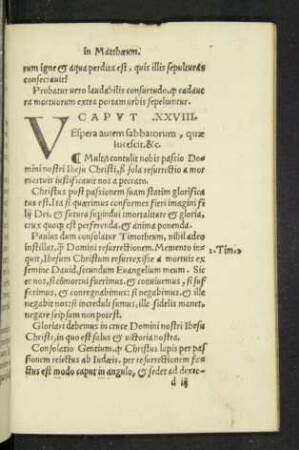 in Matthæum.
rum igne & aqua perdita est, quis illis sepulturas
consecrauit?
Probatur vero laudabilis consuetudo, qp cadaue
ra mortuorum extra portam vrbis sepeliuntur.
CAPVT .XXVIII.
VEspera autem sabbatorum, quæ
lucescit.&c.
¶ Multa contulit nobis passio Do
mini nostri Ihesu Christi, si sola resurrectio a mor
mortuis iustificauit nos a peccato.
Christus post passionem suam statim glorifica
tus est. Ita si quærimus conformes fieri imagini fi
lij Dei, & futura supindui imortalitate & gloria,
crux quoque est perferenda, & anima ponenda.
Paulus dum consolatur Timotheum, nihil adeo
instillat, qp Domini resurrectionem. Memento in
quit, Ihesum Christum resurrexisse a mortuis ex
semine Dauid, secundum Euangelium meum. Sic
et nos, si cōmortui fuerimus, & conuiuemus, si suf
fecerimus, & conregnabimus: si negabimus, & ille
negabit nos: si increduli sumus, ille fidelis manet,
negare seipsum non potest.
2.Tim.2
Gloriari debemus in cruce Domini nostri Ihesu
Christi, in quo est salus & victoria nostra.
Consolatio Gentium, qp Christus lapis per pas
sionem reiectus ab Iudæis, per resurrectionem fa
ctus est modo caput in angulo, & sedet ad dexte-
d iij